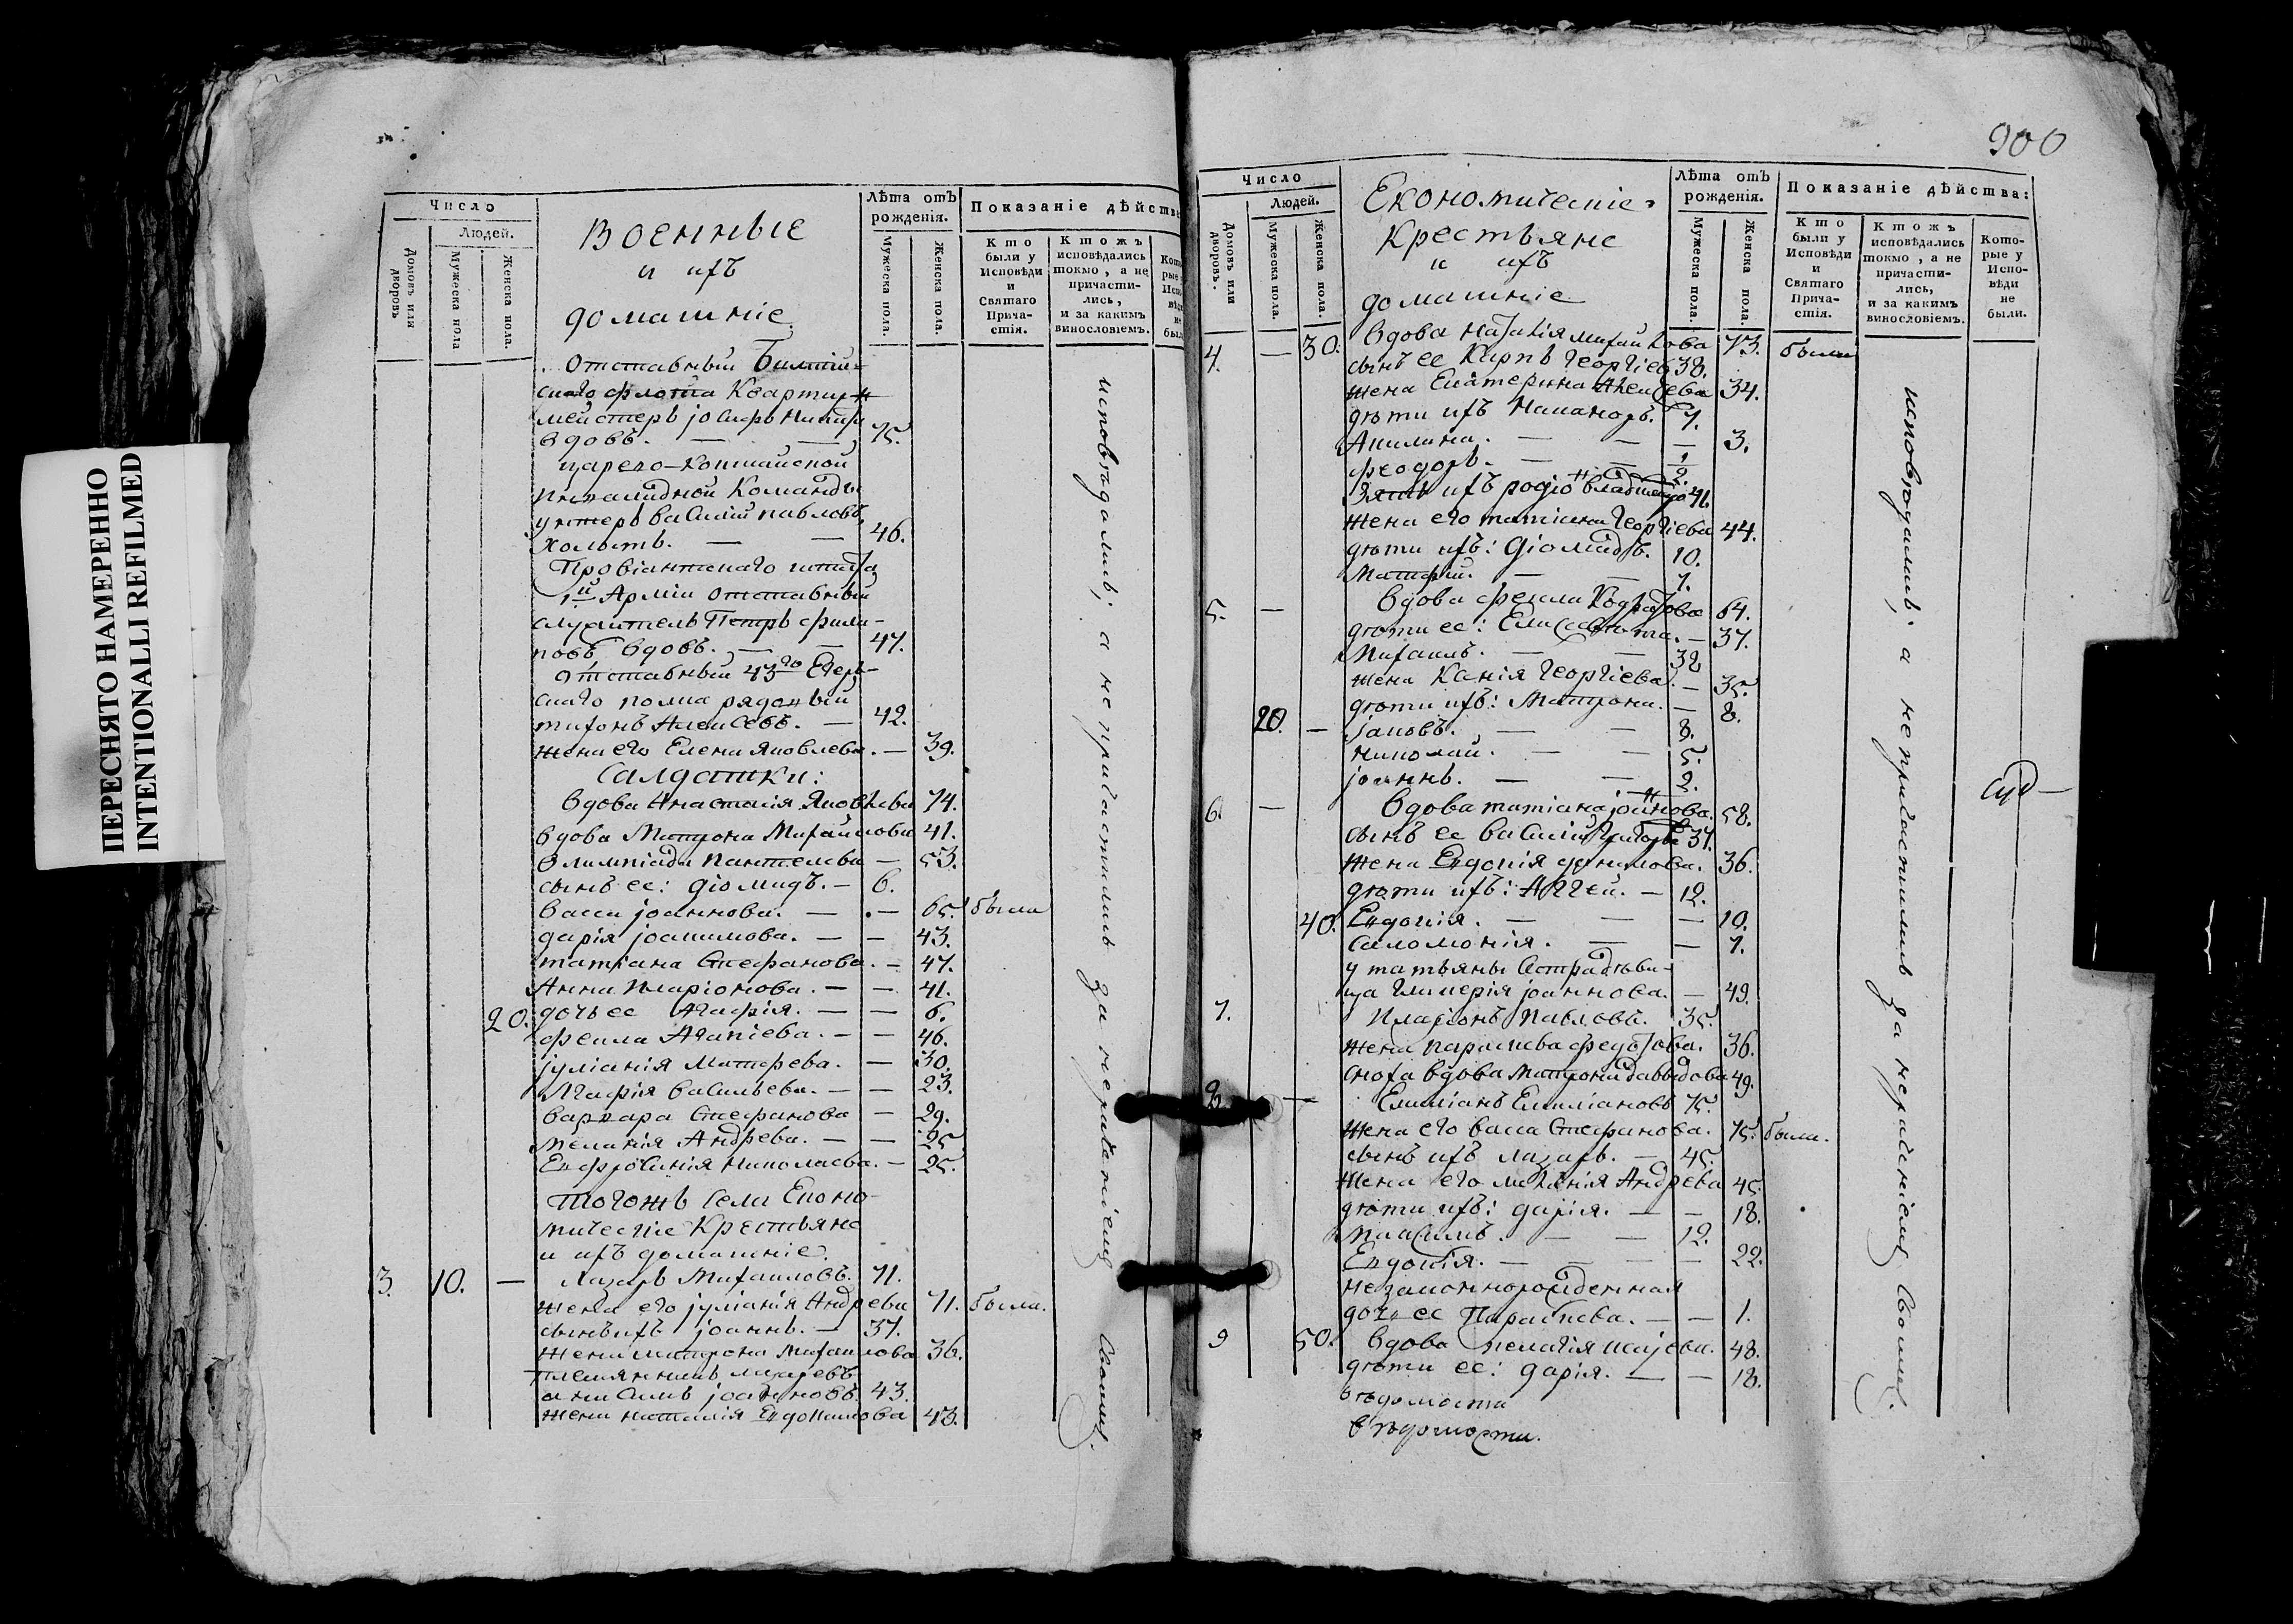 ПЕРЕСНЯТО НАМЕРЕННО
INTENTIONALLI REFILMED
Число
Людей.
Домовъ или дворовъ
Мужеска пола
Женска пола.
Военные
и ихъ
домашніе
Лѣта отъ рожденія.
Мужеска пола.
Женска пола.
Показаніе дѣйств
Кто были у Исповѣди и Святаго Прича-стія.
Ктожъ исповѣдались токмо, а не причасти-лись, и за какимъ винословіемъ.
Отставный Балтій-
скаго флота Квартир-
мейстеръ Іосифъ
вдовъ. — — 75.
инвалидной Команды
унтеръ Василій Павловъ
холостъ. — — 46.
Провіантскаго штата
1й Арміи отставный
служитель Петръ Фили-
повъ вдовъ. — — 47.
Отставный 43го Егер-
скаго полка рядовый
Тихонъ Алексѣевъ. — 42.
жена его Елена Яковлева. — 39.
Салдатки:
вдова Анастасія Яковлева 74.
вдова Матрона Михайлова 41.
Олимпіада Пантелева — 53.
сынъ ее: Діомидъ. — 6.
Васса Іоаннова. — — 65. была
Дарія Іоакимова. — — 43.
Татіана Стефанова. — 47.
Анна Иларіонова. — — 41.
20. дочь ее Агафія. — — 6.
Фекла Агапіева. — — 46.
Іуліанія Матфева. — 30.
Агафія Васильева. — — 23.
Варвара Стефанова — 29.
Меланія Андрева. — — 25
Евфросинія Николаева. — 25.
Тогожъ села Еконо-
мическіе Крестьяне
и ихъ домашніе.
3. 10. — Лазарь Михайловъ. 71.
жена его Іуліанія Андрева 71. были.
сынъ ихъ Іоаннъ. — 37.
жена Матрона Михайлова 36.
племянникъ Лазаревъ
Іоанновъ. 43.
жена Наталія Евдокимова 43.
исповѣдались; а не причастились за нерачніемъ своимъ.
900
Число
Людей.
Домовъ или дворовъ.
Мужеска пола.
Женска пола.
Економическіе
Крестьяне
и ихъ
домашніе
Лѣта отъ рожденія.
Мужеска пола.
Женска пола.
Показаніе дѣйства:
Кто были у Исповѣди и Святаго Прича-стія.
Ктожъ исповѣдались токмо, а не причасти-лись, и за какимъ винословіемъ.
Кото-рые у Испо-вѣди не были.
4. — 30. Вдова Наталія Михайлова 73. были
сынъ ее Карпъ Георгіевъ 38.
жена Екатерина Алексѣева 34.
дѣти ихъ Никаноръ. 7.
Акилина. — — — 3.
Феодоръ. — — 2.
Зять ихъ 41.
жена его Татіана Георгіева 44.
дѣти ихъ: Діомидъ. 10.
Матфей. — — 7.
5. — Вдова Фекла Кодратова 64.
дѣти ее: Елисавета. — 37.
Михаилъ. — — 32
жена Ксенія Георгіева. — 35.
дѣти ихъ: Матрона. — 8.
20. — Іаковъ. — — 8.
Николай. — — 5.
Іоаннъ. — — 2.
6. — Вдова Татіана Іоаннова. 58.
сынъ ее Василій Григорьевъ 37.
жена Евдокія Данилова. 36.
дѣти ихъ: Аггей. — 12.
40. Евдокія. — — — 10.
Саломонія. — — 7.
у Татьяны Сестра дѣви-
ца Гликерія Іоаннова. — 49.
7. Иларіонъ Павловъ. 35.
жена Параскева Федорова. 36.
сноха вдова Матрона Давыдова 49.
8. — Емиліанъ Емиліановъ 75.
жена его Васса Стефанова. 75. были.
сынъ ихъ Лазарь. — 45.
жена его Меланія Андрева 45.
дѣти ихъ: Дарія. — — 18.
Максимъ. — — 12.
Евдокія. — — — 22.
незаконнорожденная
дочь ее Параскева. — — 1.
9 50. Вдова Пелагія Исаіева. 48.
дѣти ее: Дарія. — — 18.
вѣдомости
вѣдомости.
исповѣдались; а не причастились за нерачніемъ своимъ.